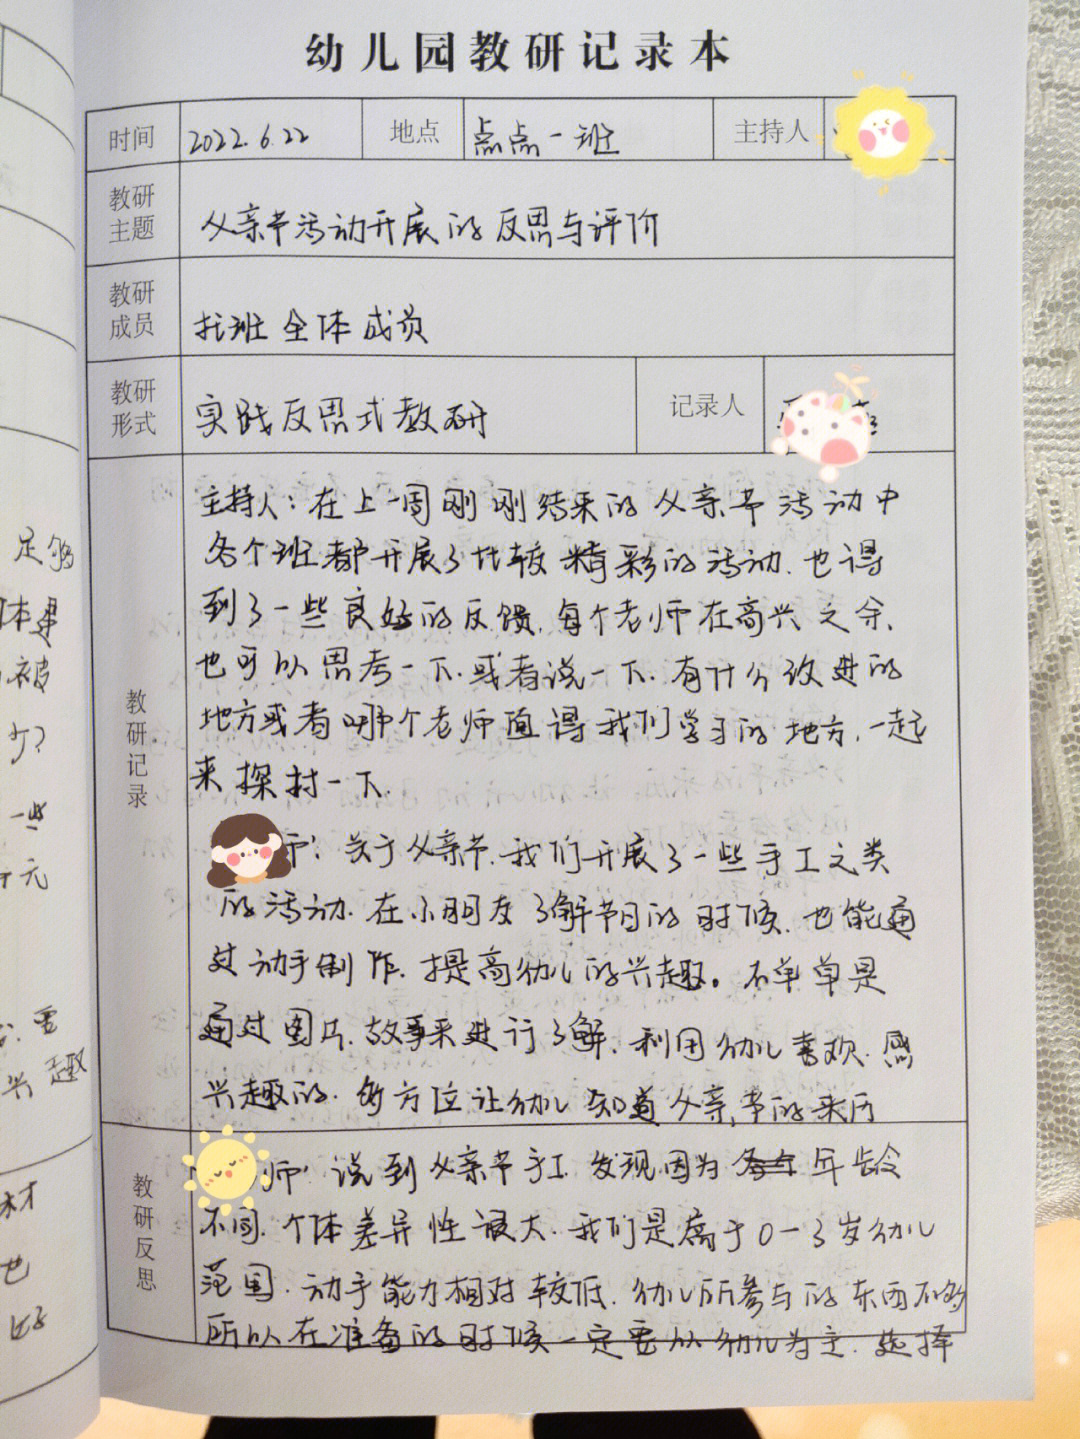 幼儿园教研记录本
时间 2022.6.22 地点 点点一班 主持人
教研主题 父亲节活动开展的反思与评价
教研成员 托班全体成员
教研形式 实践反思式教研 记录人
教研记录
主持人：在上一周刚刚结束的父亲节活动中
各个班都开展了比较精彩的活动、也得
到了一些良好的反馈、每个老师在高兴之余、
也可以思考一下、或者说一下、有什么改进的
地方或者哪个老师值得我们学习的地方、一起
来探讨一下、
师：关于父亲节、我们开展了一些手工之类
的活动、在小朋友了解节日的时候、也能通
过动手制作、提高幼儿的兴趣。不单单是
通过图片、故事来进行了解、利用幼儿喜欢、感
兴趣的、多方位让幼儿知道父亲节的来历
教研反思
师：说到父亲节手工、发现因为年龄
不同、个体差异性最大、我们是属于0-3岁幼儿
范围、动手能力相对较低、幼儿所参与的东西不够
所以在准备的时候一定要以幼儿为主、选择
足够
体建
被
少？
一些
元
需
兴趣
材
也